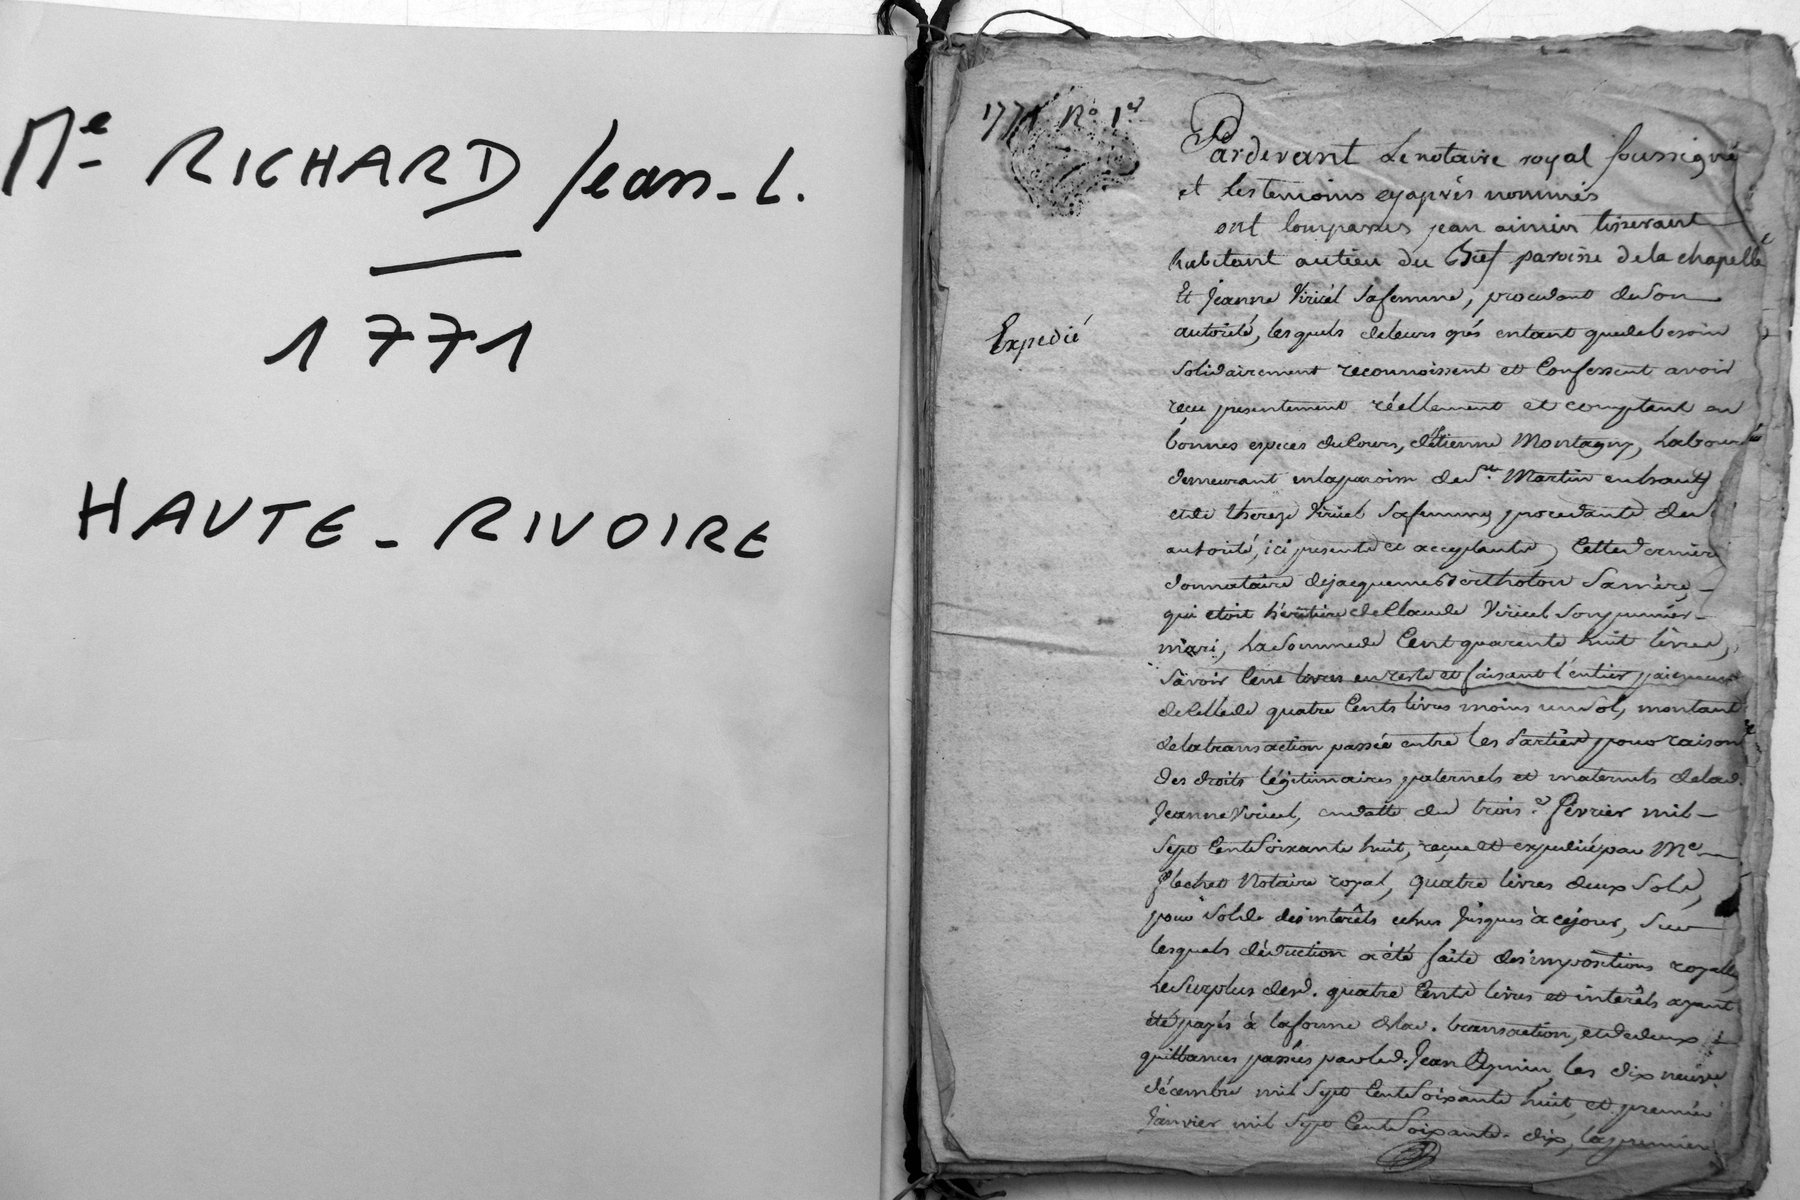 Me RICHARD Jean-L.
1771
HAUTE-RIVOIRE
1771 No. 1er
Expedié
Pardevant Le notaire royal soussigné
et Les temoins cyaprès nommés
ont comparus jean aimin tisserant
habitant au lieu du Bief paroisse de la chapelle
Et Jeanne Viricel Safemme, procedant deson
autorité, lesquels deleurs grés entant quedebesoin
solidairement reconnoissent et Confessent avoir
reçu presentement réellement et comptant en
bonnes especes duCours, d'Etienne Montagny, Laboureur
demeurant enlaparoisse de St. Martin enhaut
etde thereze Viricel Safemme, procedante de
autorité, ici presente et acceptante, Cette derniere
donnataire dejacqueme Bertholon Samère,
qui etoit héritiere deClaude Viricel Son premier
mari, La Somme de Cent quarente huit livres,
Savoir Cent livres enreste et faisant l'entier paiement
deCellede quatre Cents livres moins un Sol, montant
delatransaction passée entre les Parties pour raison
des droits légitimaires paternels et maternels delad.
Jeanne Viricel, endatte du trois Février mil
Sept Cent Soixante huit, reçue et expediée par Me
Flechet Notaire royal, quatre livres deux Sols,
pour Solde des interêts echus jusques à cejour, Sur
lesquels déduction a été faite des impositions royalles
Le Surplus desd. quatre Cents livres et interêts ayant
été payés à laforme delad. transaction, et dedeux
quittances passées parled. Jean Aymin, les dix neuf
décembre mil Sept Cent Soixante huit, et premier
Janvier mil Sept Cent Soixante-dix, la premiere